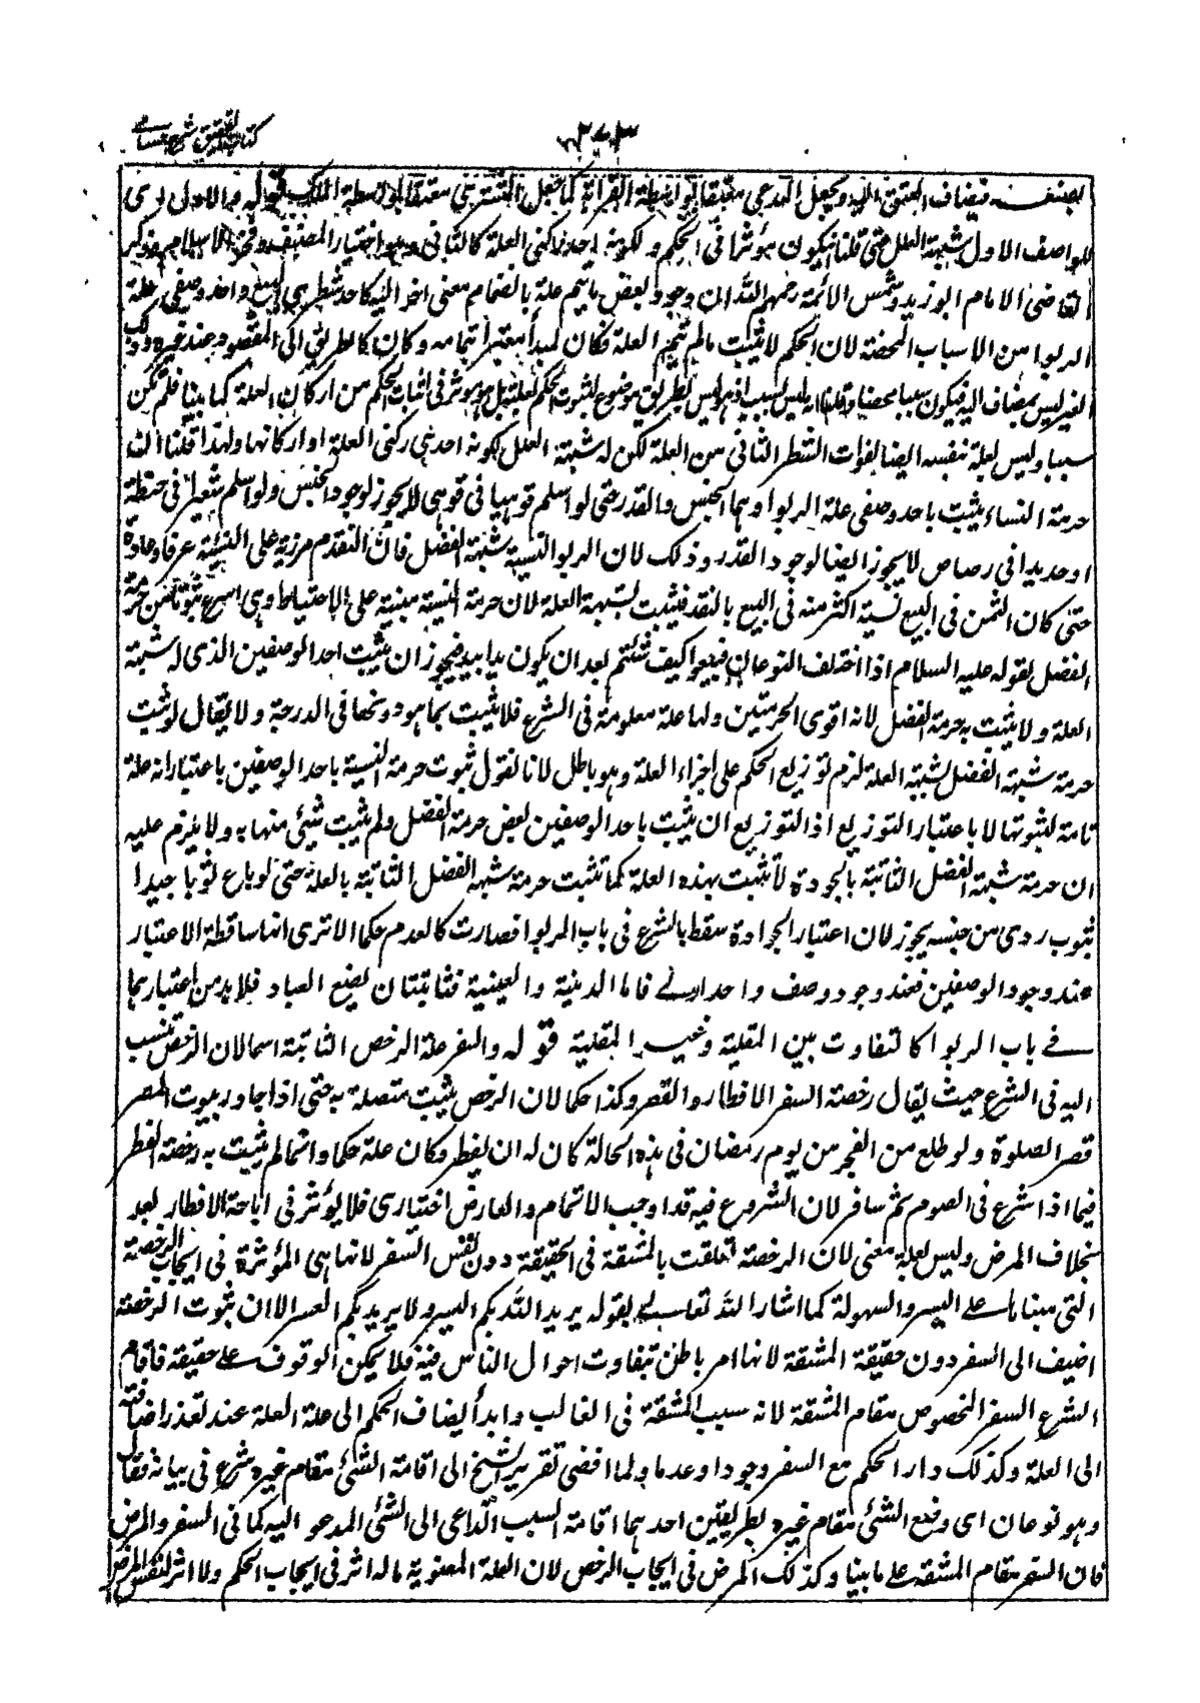 كتاب التحقيق شرح حسامى
٢٧٣
بصنعه فيضاف العتق اليه ويجعل المدعي معتقا بواسطة القرابة كما جعل المشترى معتقا بواسطة الملك قوله والاول
الواصف الاول شبهة العلل حتى قلنا ليكون مؤثرا فى الحكم ولكونه احد ركنى العلة كالثانى وهو اختيار المصنف وفخر الاسلام وذكر
القاضى الامام ابو زيد وشمس الائمة رحمهم الله ان وجود بعض ما يتم علة بانضمام معنى اخر اليه كاحد شطرى البيع واحد وصفى علة
الربوا من الاسباب المحضة لان الحكم لا يثبت مالم تتم العلة فكان المبدأ معتبرا بتمامه وكان كالطريق الى المقصود عند غيره وذلك
الغير ليس بمضاف اليه فيكون سببا محضا وقلنا انه ليس بسبب اذ هو ليس بطريق موضوع لثبوت الحكم لعلة بل هو مؤثر فى اثبات الحكم من اركان العلة كما بينا فلم يكن
سببا وليس لعلة بنفسه ايضا لفوات الشطر الثانى من العلة لكن له شبهة العلل لكونه احد ركنى العلة او اركانها ولهذا قلنا ان
حرمة النساء يثبت باحد وصفى علة الربوا وهما الجنس والقدر حتى لو اسلم قوهيا فى قوهى لا يجوز لوجود الجنس ولو اسلم شعيرا فى حنطة
او حديدا فى رصاص لا يجوز ايضا لوجود القدر وذلك لان الربوا النسية شبهة الفضل فان النقد مزية على النسيئة عرفا وعادة
حتى كان الثمن فى البيع نسية اكثر منه فى البيع بالنقد فيثبت بشبهة العلة لان حرمة النسية مبنية على الاحتياط وهى اسرع ثبوتا من حرمة
الفضل لقوله عليه السلام اذا اختلف النوعان فبيعوا كيف شئتم بعد ان يكون يدا بيد فيجوز ان يثبت باحد الوصفين الذى له شبهة
العلة ولا يثبت به حرمة الفضل لانه اقوى الحرمتين ولها علة معلومة فى الشرع فلا يثبت بما هو دونها فى الدرجة ولا يقال لو ثبت
حرمة شبهة الفضل بشبهة العلة لزم توزيع الحكم على اجزاء العلة وهو باطل لانا نقول ثبوت حرمة النسية باحد الوصفين باعتبار انه علة
تامة لثبوتها لا باعتبار التوزيع اذ التوزيع ان يثبت باحد الوصفين بعض حرمة الفضل ولم يثبت شئ منها به ولا يلزم عليه
ان حرمة شبهة الفضل الثابتة بالجودة لا تثبت بهذه العلة كما تثبت حرمة شبهة الفضل الثابتة بالعلة حتى لو باع ثوبا جيدا
بثوب ردى من جنسه يجوز لان اعتبار الجوادة سقط بالشرع فى باب الربوا فصارت كالعدم حكما الا ترى انها ساقطة الاعتبار
عند وجود الوصفين فعند وجود وصف واحد اولى فاما الدينية والعينية فثابتتان بصنع العباد فلا بد من اعتبارهما
فى باب الربوا كالتفاوت بين المقلية وغير المقلية قوله والسفر علة الرخص الثابتة اسما لان الرخص تنسب
اليه فى الشرع حيث يقال رخصة السفر الافطار والقصر وكذا حكما لان الرخص يثبت متصلة به حتى اذا جاوز بيوت المصر
قصر الصلوة ولو طلع من الفجر من يوم رمضان فى هذه الحالة كان له ان يفطر وكان علة حكما وانما لم يثبت به رخصة الفطر
فيما اذا شرع فى الصوم ثم سافر لان الشروع فيه قد اوجب الاتمام والعارض اختيارى فلا يؤثر فى اباحة الافطار بعد
بخلاف المرض وليس لعلة معنى لان الرخصة تعلقت بالمشقة فى الحقيقة دون نفس السفر لانها هى المؤثرة فى ايجاب الرخصة
التى مبناها على اليسر والسهولة كما اشار الله تعالى بقوله يريد الله بكم اليسر ولا يريد بكم العسر الا ان ثبوت الرخصة
اضيف الى السفر دون حقيقة المشقة لانها امر باطن تتفاوت احوال الناس فيه فلا يمكن الوقوف على حقيقة فاقام
الشرع السفر المخصوص مقام المشقة لانه سبب المشقة فى الغالب وابدأ يضاف الحكم الى علة العلة عند تعذر اضافته
الى العلة وكذلك دار الحكم مع السفر وجودا وعدما ولما افضى تقرير الشيخ الى اقامة الشئ مقام غيره شرع فى بيانه فقال
وهو نوعان اى وضع الشئ مقام غيره بطريقين احدهما اقامة السبب الداعى الى الشئ المدعو اليه كما فى السفر والمرض
فان السفر مقام المشقة على ما بينا وكذلك المرض فى ايجاب الرخص لان العلة المعنوية ما له اثر فى ايجاب الحكم ولا اثر لنفس المرض